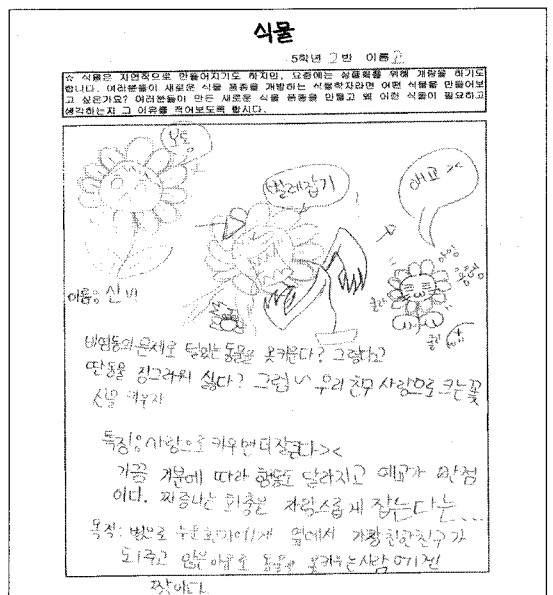 식물
5학년 2반 이름 고
☆ 식물은 자연적으로 만들어지기도 하지만, 요즘에는 상품화를 위해 개량을 하기도
합니다. 여러분들이 새로운 식물 품종을 개발하는 식물학자라면 어떤 식물을 만들어보
고 싶은가요? 여러분들이 만든 새로운 식물 품종을 만들고 왜 이런 식물이 필요하고
생각하는지 그 이유를 적어보도록 합시다.
보통
벌레잡기
애교 ><
이름: 신비
털있는 동물을 못키운다? 그렇다고
딴동물 징그러워 싫다? 그럼~ 우리 친구 사랑으로 크는 꽃
키우자
특징: 사랑으로 키우면 더 잘큰다><
가끔 기분에 따라 행동도 달라지고 애교가 만점
이다. 짜증나는 회충은 자랑스럽게 잡는다는...
목적: 병으로 누운 옆에서 가장친한친구가
되주고 동물을 못키우는사람에겐
짱이다.